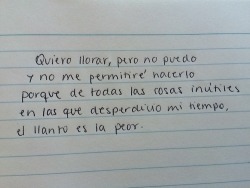 Quiero llorar, pero no puedo
y no me permitiré hacerlo
porque de todas las cosas inútiles
en las que desperdicio mi tiempo,
el llanto es la peor.